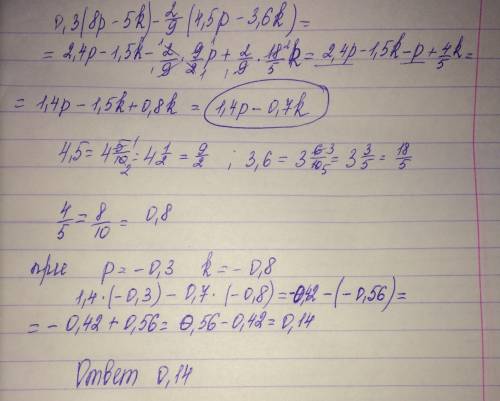 0,3(8p-5k)-2/9(4,5p-3,6k)=
=2,4p-1,5k-2/9·9/2p+2/9·18/5k=2,4p-1,5k-p+4/5k=
=1,4p-1,5k+0,8k=1,4p-0,7k
4,5=4 5/10=4 1/2=9/2; 3,6=3 6/10=3 3/5=18/5
4/5=8/10=0,8
при p=-0,3 k=-0,8
1,4·(-0,3)-0,7·(-0,8)=-0,42-(-0,56)=
=-0,42+0,56=0,56-0,42=0,14
Ответ 0,14